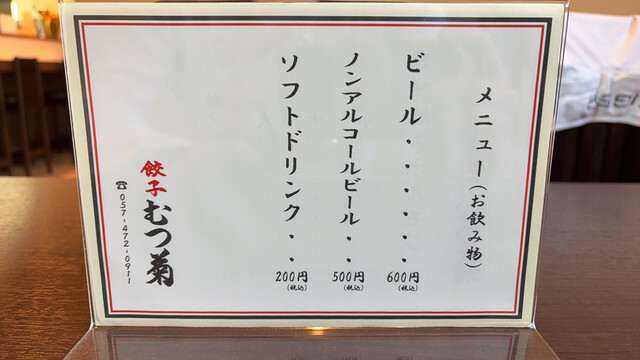 メニュー(お飲み物)
ビール・・・・・・・600円(税込)
ノンアルコールビール・・500円(税込)
ソフトドリンク・・200円(税込)
餃子むつ菊
☎057-472-0911